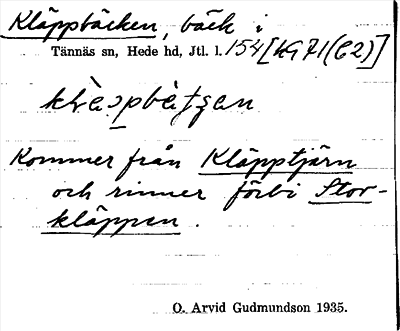 Kläppbäcken, bäck i
Tännäs sn, Hede hd, Jtl. l. 154 [49 71 (C2)]
Kommer från Kläpptjärn
och rinner förbi Stor-
kläppen.
O. Arvid Gudmundson 1935.